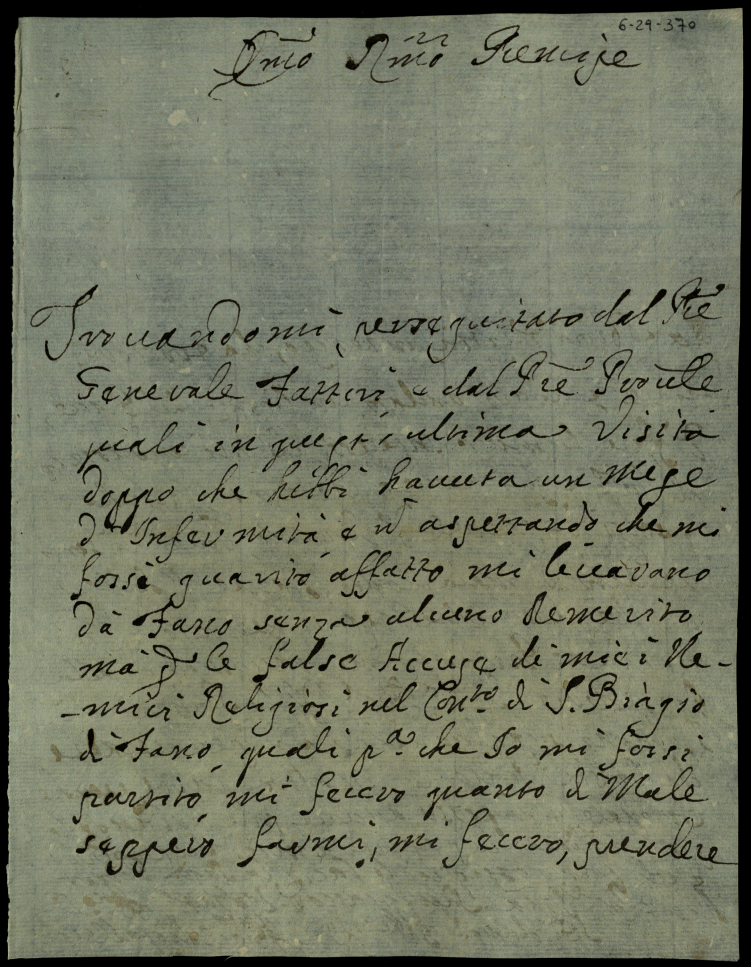 6-29-370
Emo Rmo Prencipe
Trovandomi perseguitato dal Pre
Generale Fattori e dal Pre Provle
quali in questa ultima Visita
doppo che hebbi havuta un mese
d'Infermità, e n aspettando che mi
fossi guarito affatto mi levavano
dà Fano senza alcuno demerito
mà p le false Accuse de miei Ne-
-mici Religiosi nel Convto di S. Biagio
di Fano, quali pa che Io mi fossi
partito, mi fecero quanto di Male
seppero farmi, mi fecero, prendere